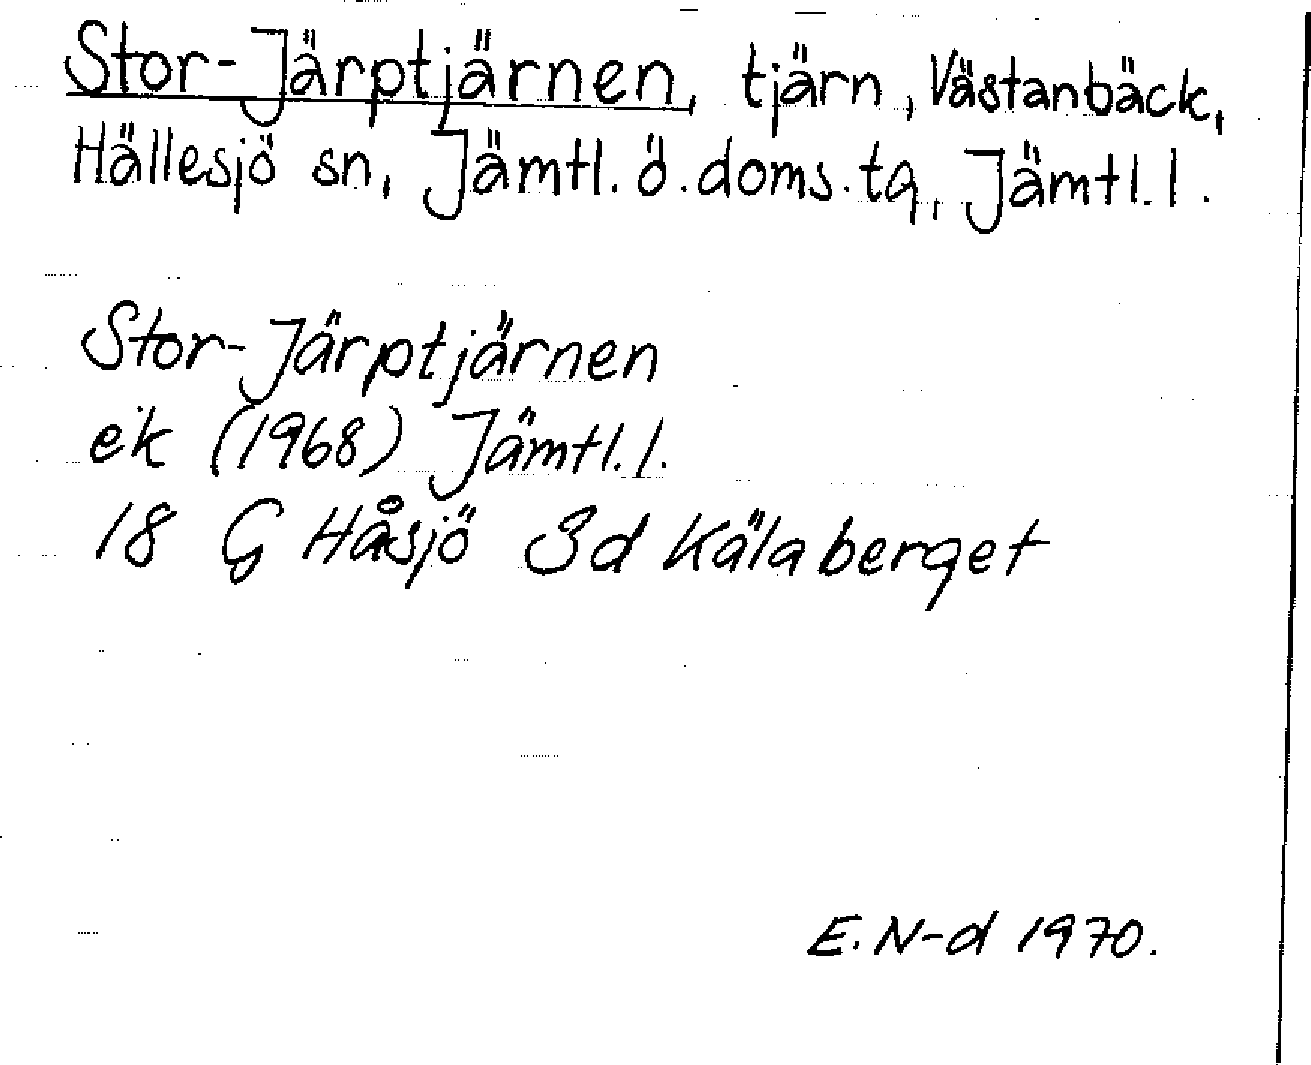 Stor-Järptjärnen, tjärn, Västanbäck,
Hällesjö sn, Jämtl. ö. doms. tg, Jämtl. l.
Stor-Järptjärnen
ek (1968) Jämtl. l.
18 G Håsjö 3d Kälaberget
E. N-d 1970.